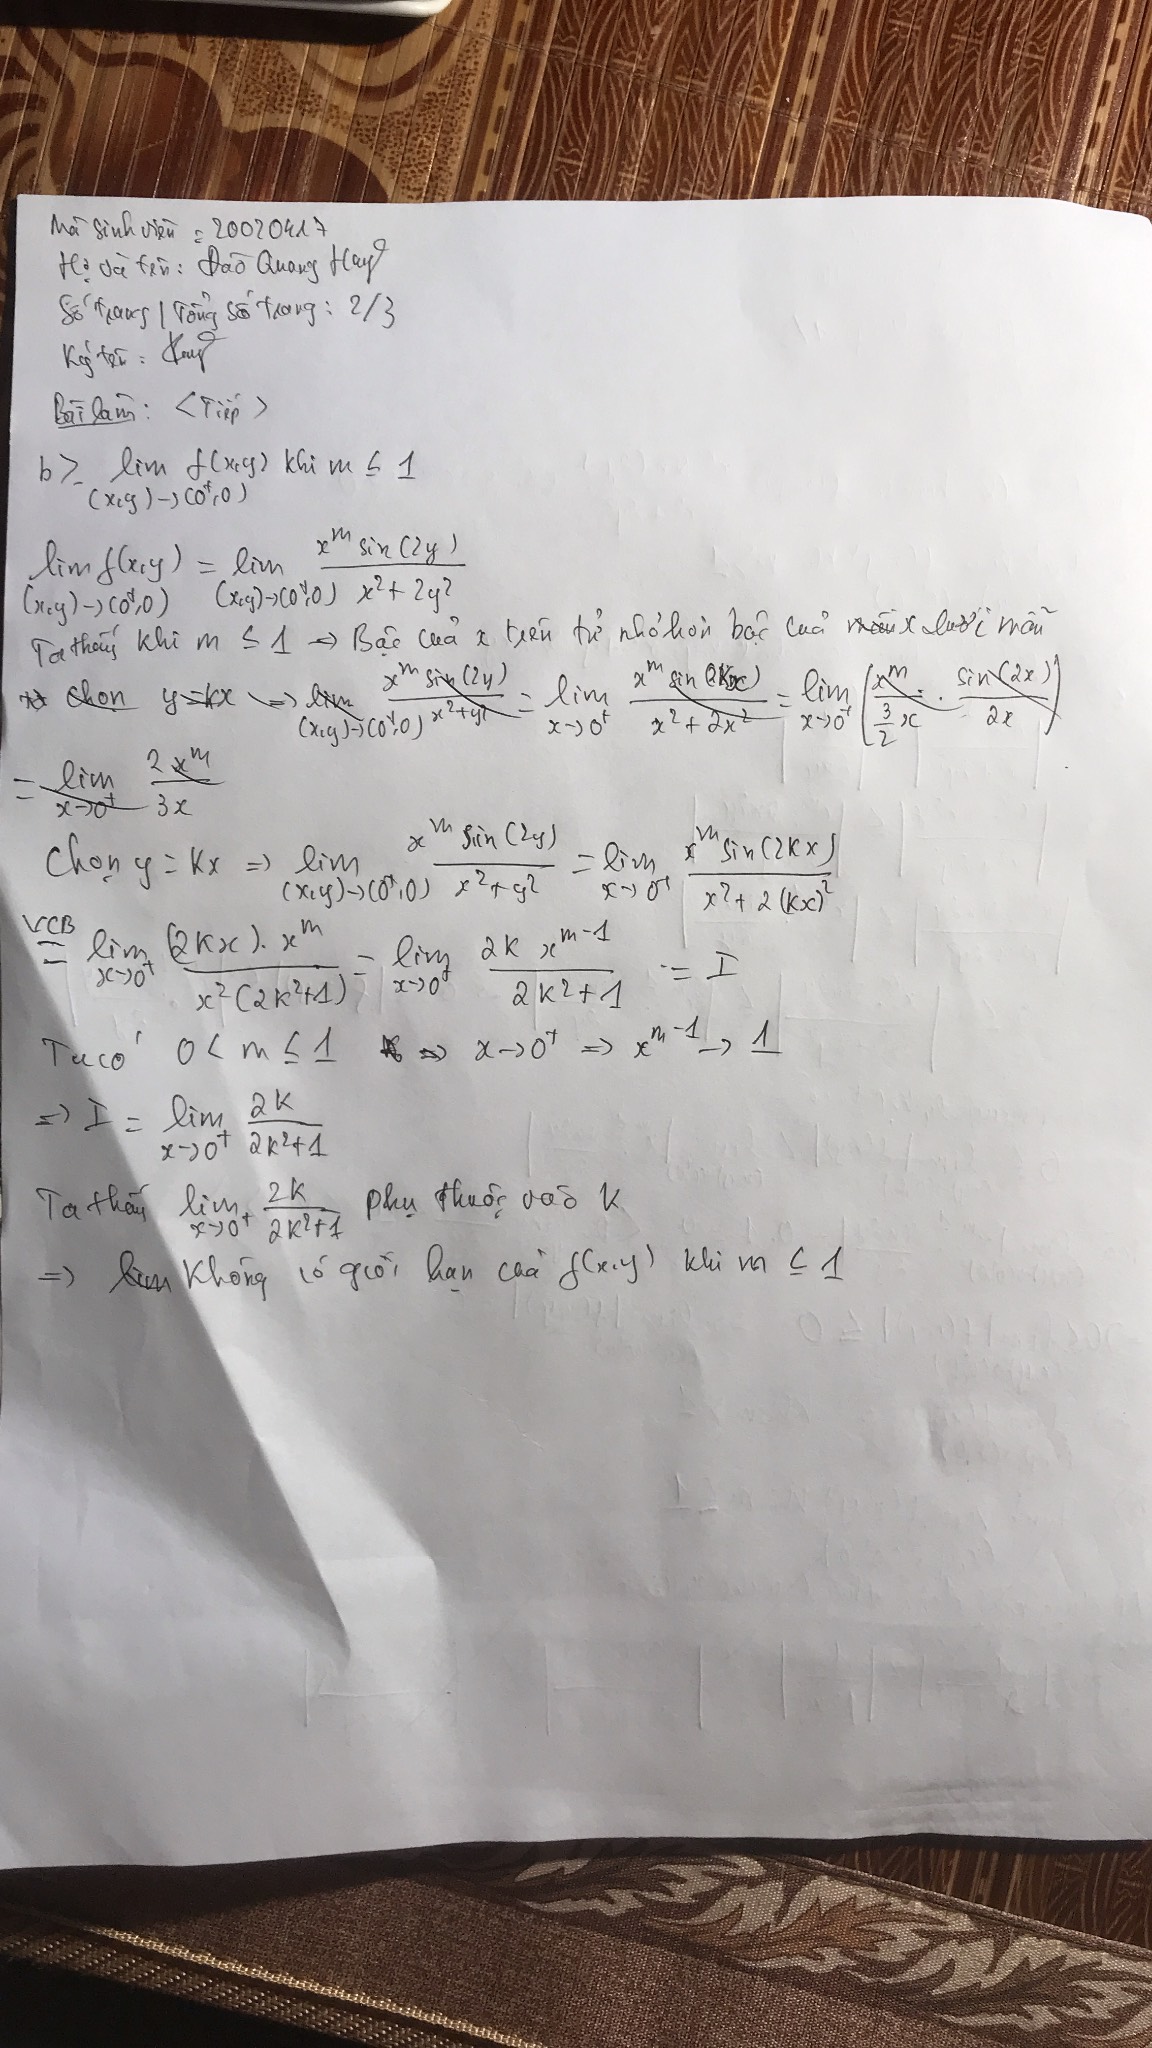 Mã sinh viên: 20020417
Họ và tên: Đào Quang Huy
Số trang / Tổng số trang: 2/3
Ký tên: Huy
Bài làm: <Tiếp>
b> lim f(x,y) khi m ≤ 1
(x,y)→(0⁺,0)
lim f(x,y) = lim x^m sin(2y) / x² + 2y²
(x,y)→(0⁺,0) (x,y)→(0⁺,0)
Ta thấy khi m ≤ 1 ⇒ Bậc của x trên tử nhỏ hơn bậc của x dưới mẫu
chọn y=kx ⇒ lim x^m sin(2y) / x²+y² = lim x^m sin(2kx) / x² + 2x² = lim (x^m / (3/2)x · sin(2x) / 2x)
(x,y)→(0⁺,0) x→0⁺ x→0⁺
= lim 2x^m / 3x
x→0⁺
Chọn y = kx ⇒ lim x^m sin(2y) / x²+y² = lim x^m sin(2kx) / x² + 2(kx)²
(x,y)→(0⁺,0) x→0⁺
VCB
= lim (2kx). x^m / x²(2k²+1) = lim 2k x^{m-1} / 2k²+1 = I
x→0⁺ x→0⁺
Ta có 0 < m ≤ 1 ⇒ x→0⁺ ⇒ x^{m-1} → 1
⇒ I = lim 2k / 2k²+1
x→0⁺
Ta thấy lim 2k / 2k²+1 phụ thuộc vào k
x→0⁺
⇒ lim Không có giới hạn của f(x,y) khi m ≤ 1